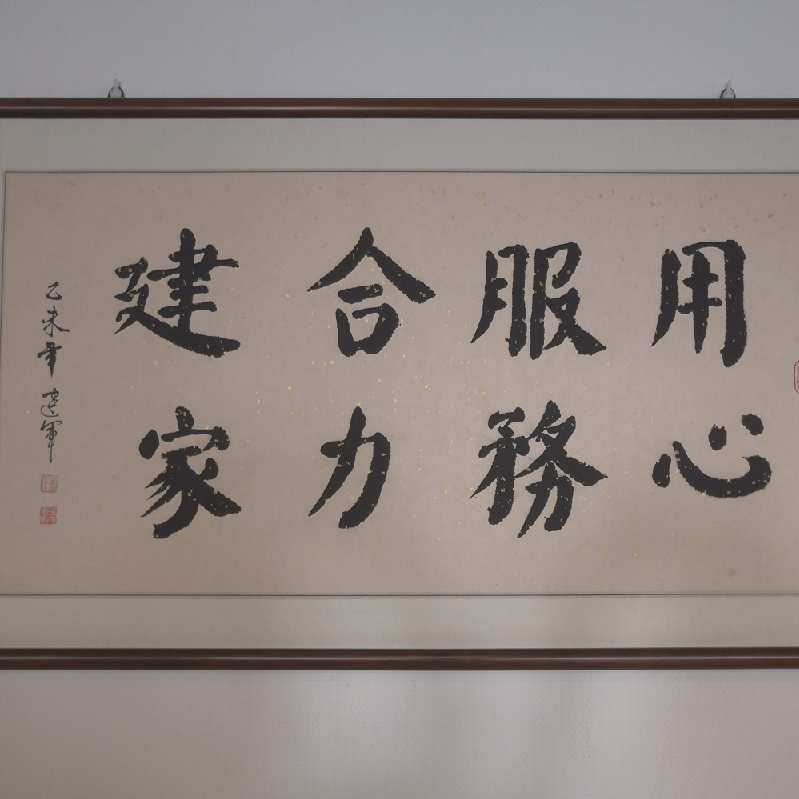 用心
服務
合力
建家
乙未年 建军